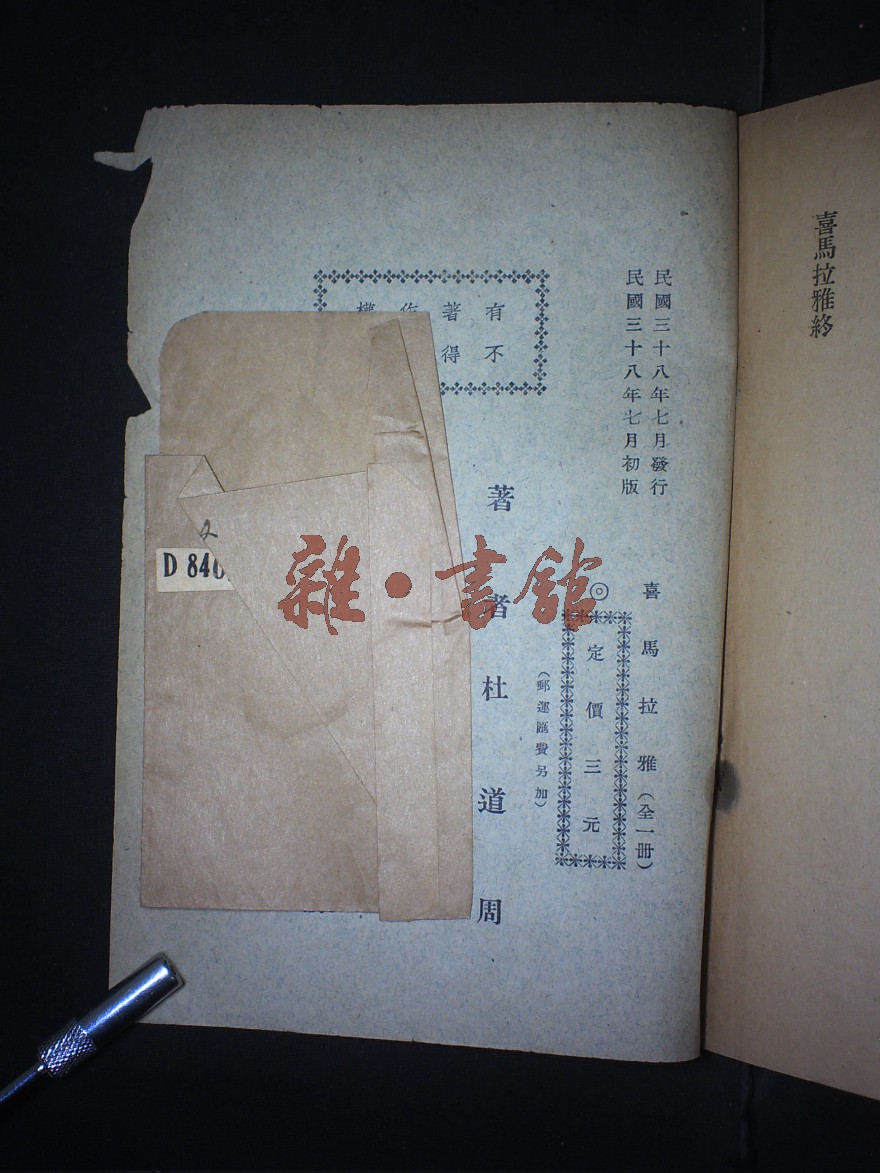 喜馬拉雅終
民國三十八年七月發行
民國三十八年七月初版
喜馬拉雅（全一册）
◎定價三元
（郵運匯費另加）
著者杜道周
有著作權
不得
D 840
雜·書舘